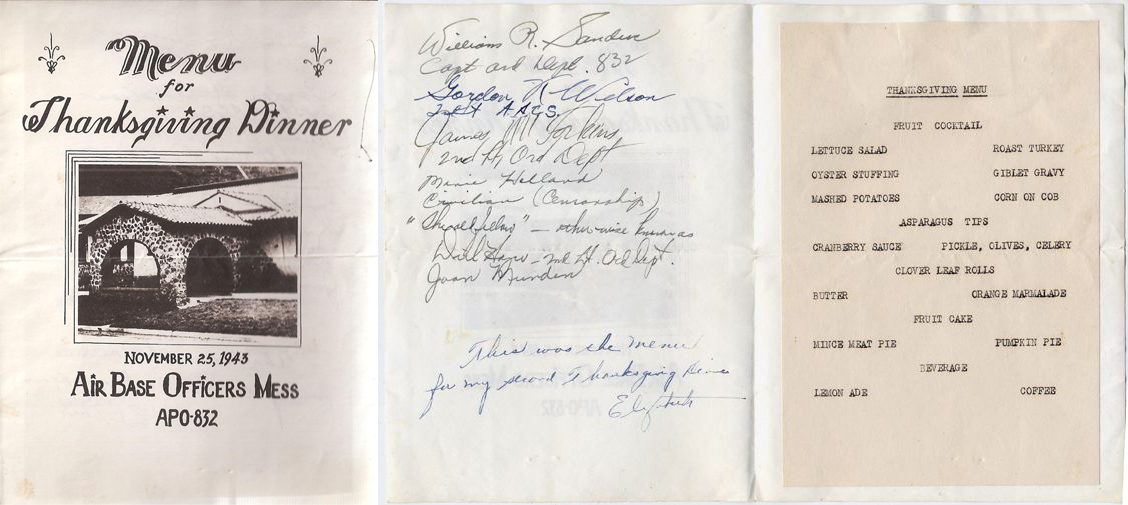 Menu
for
Thanksgiving Dinner
NOVEMBER 25, 1943
AIR BASE OFFICERS MESS
APO-832
William R.
Capt ord Dept. 832
Gordon K Wilson
A.A.C.S.
James M
2nd Lt, Ord Dept
Holland
Civilian (Censorship)
— otherwise known as
2nd Lt. Ord Dept.
Joan Munden
This was the menu
for my second Thanksgiving
THANKSGIVING MENU
FRUIT COCKTAIL
LETTUCE SALAD ROAST TURKEY
OYSTER STUFFING GIBLET GRAVY
MASHED POTATOES CORN ON COB
ASPARAGUS TIPS
CRANBERRY SAUCE PICKLE, OLIVES, CELERY
CLOVER LEAF ROLLS
BUTTER ORANGE MARMALADE
FRUIT CAKE
MINCE MEAT PIE PUMPKIN PIE
BEVERAGE
LEMON ADE COFFEE